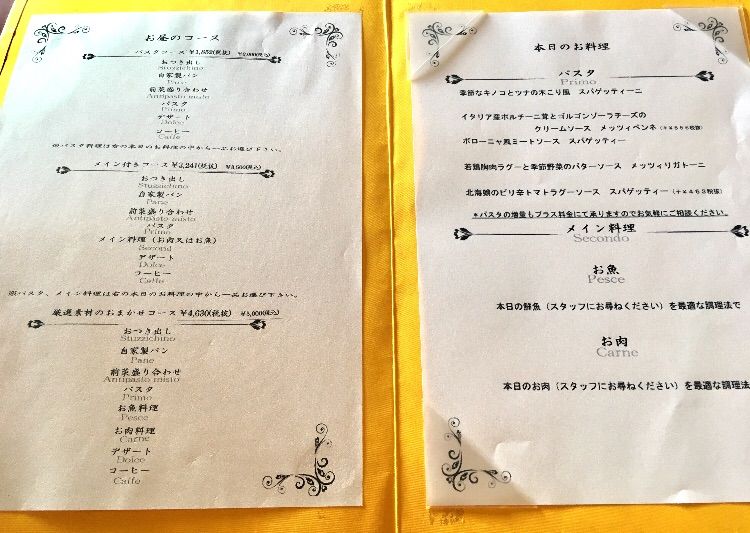 お昼のコース
パスタコース ¥1,852(税抜) ¥2,000(税込)
おつき出し
Stuzzichino
自家製パン
Pane
前菜盛り合わせ
Antipasto misto
パスタ
Primo
デザート
Dolce
コーヒー
Caffe
※パスタ料理は右の本日のお料理の中から一品お選び下さい。
メイン付きコース ¥3,241(税抜) ¥3,500(税込)
おつき出し
Stuzzichino
自家製パン
Pane
前菜盛り合わせ
Antipasto misto
パスタ
Primo
メイン料理（お肉又はお魚）
Second
デザート
Dolce
コーヒー
Caffe
※パスタ、メイン料理は右の本日のお料理の中から一品お選び下さい。
厳選素材のおまかせコース ¥4,630(税抜) ¥5,000(税込)
おつき出し
Stuzzichino
自家製パン
Pane
前菜盛り合わせ
Antipasto misto
パスタ
Primo
お魚料理
Pesce
お肉料理
Carne
デザート
Dolce
コーヒー
Caffe
本日のお料理
パスタ
Primo
季節なキノコとツナの木こり風 スパゲッティーニ
イタリア産ポルチーニ茸とゴルゴンゾーラチーズの
クリームソース メッツィペンネ（＋¥556税抜）
ボローニャ風ミートソース スパゲッティー
若鶏胸肉ラグーと季節野菜のバターソース メッツィリガトーニ
北海蛸のピリ辛トマトラグーソース スパゲッティー（＋¥463税抜）
＊パスタの増量もプラス料金にて承りますのでお気軽にご相談ください。
メイン料理
Secondo
お魚
Pesce
本日の鮮魚（スタッフにお尋ねください）を最適な調理法で
お肉
Carne
本日のお肉（スタッフにお尋ねください）を最適な調理法